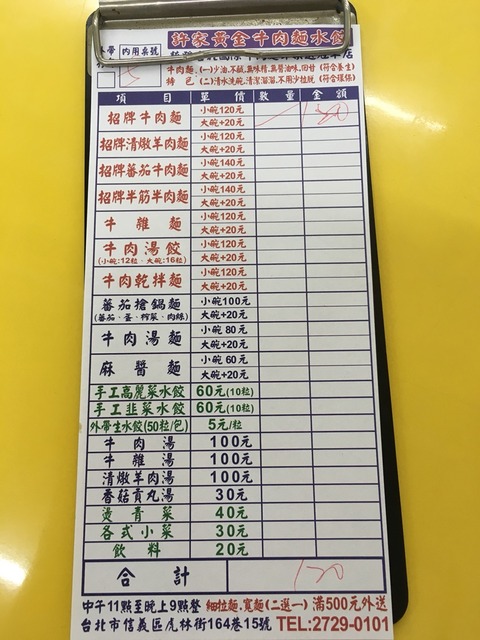 許家黃金牛肉麵水餃
外帶 內用桌號
牛肉麵:(一)少油.不膩.無味精.無醬油味.回甘(符合養生)
特色(二)清水洗碗.清潔溜溜.不用沙拉脫(符合環保)
項目 單價 數量 金額
招牌牛肉麵 小碗120元
大碗+20元
招牌清燉羊肉麵 小碗120元
大碗+20元
招牌蕃茄牛肉麵 小碗140元
大碗+20元
招牌半筋半肉麵 小碗140元
大碗+20元
牛雜麵 小碗120元
大碗+20元
牛肉湯餃 小碗120元
(小碗:12粒、大碗:16粒) 大碗+20元
牛肉乾拌麵 小碗120元
大碗+20元
蕃茄搶鍋麵 小碗100元
(蕃茄、蛋、榨菜、肉絲) 大碗+20元
牛肉湯麵 小碗80元
大碗+20元
麻醬麵 小碗60元
大碗+20元
手工高麗菜水餃 60元(10粒)
手工韭菜水餃 60元(10粒)
外帶生水餃(50粒/包) 5元/粒
牛肉湯 100元
牛雜湯 100元
清燉羊肉湯 100元
香菇貢丸湯 30元
燙青菜 40元
各式小菜 30元
飲料 20元
合計 120
中午11點至晚上9點整 細拉麵.寬麵(二選一) 滿500元外送
台北市信義區虎林街164巷15號 TEL:2729-0101